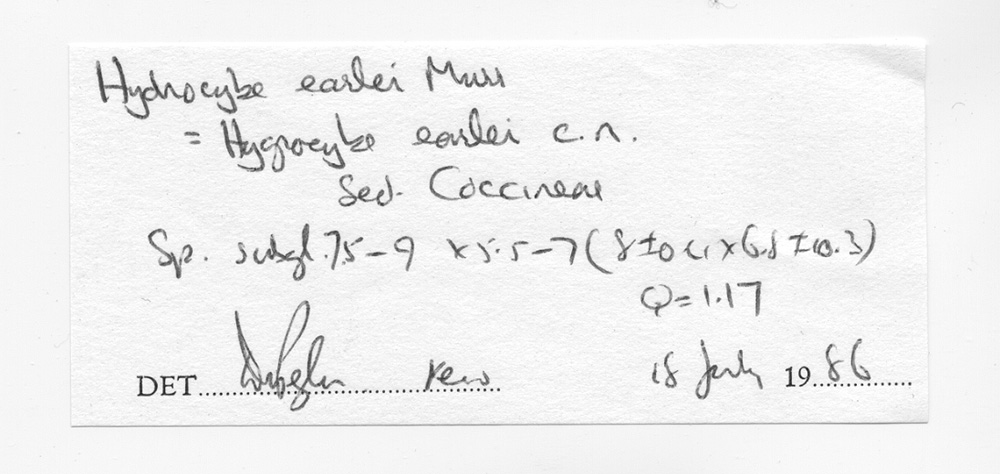 Hydrocybe earlei Murr
= Hygrocybe earlei c.n.
Sect. Coccineae
Sp. subgl. 7.5-9 x 5.5-7 (8 ± x 6.8 ± 0.3)
Q = 1.17
DET. Kew 18 July 1986